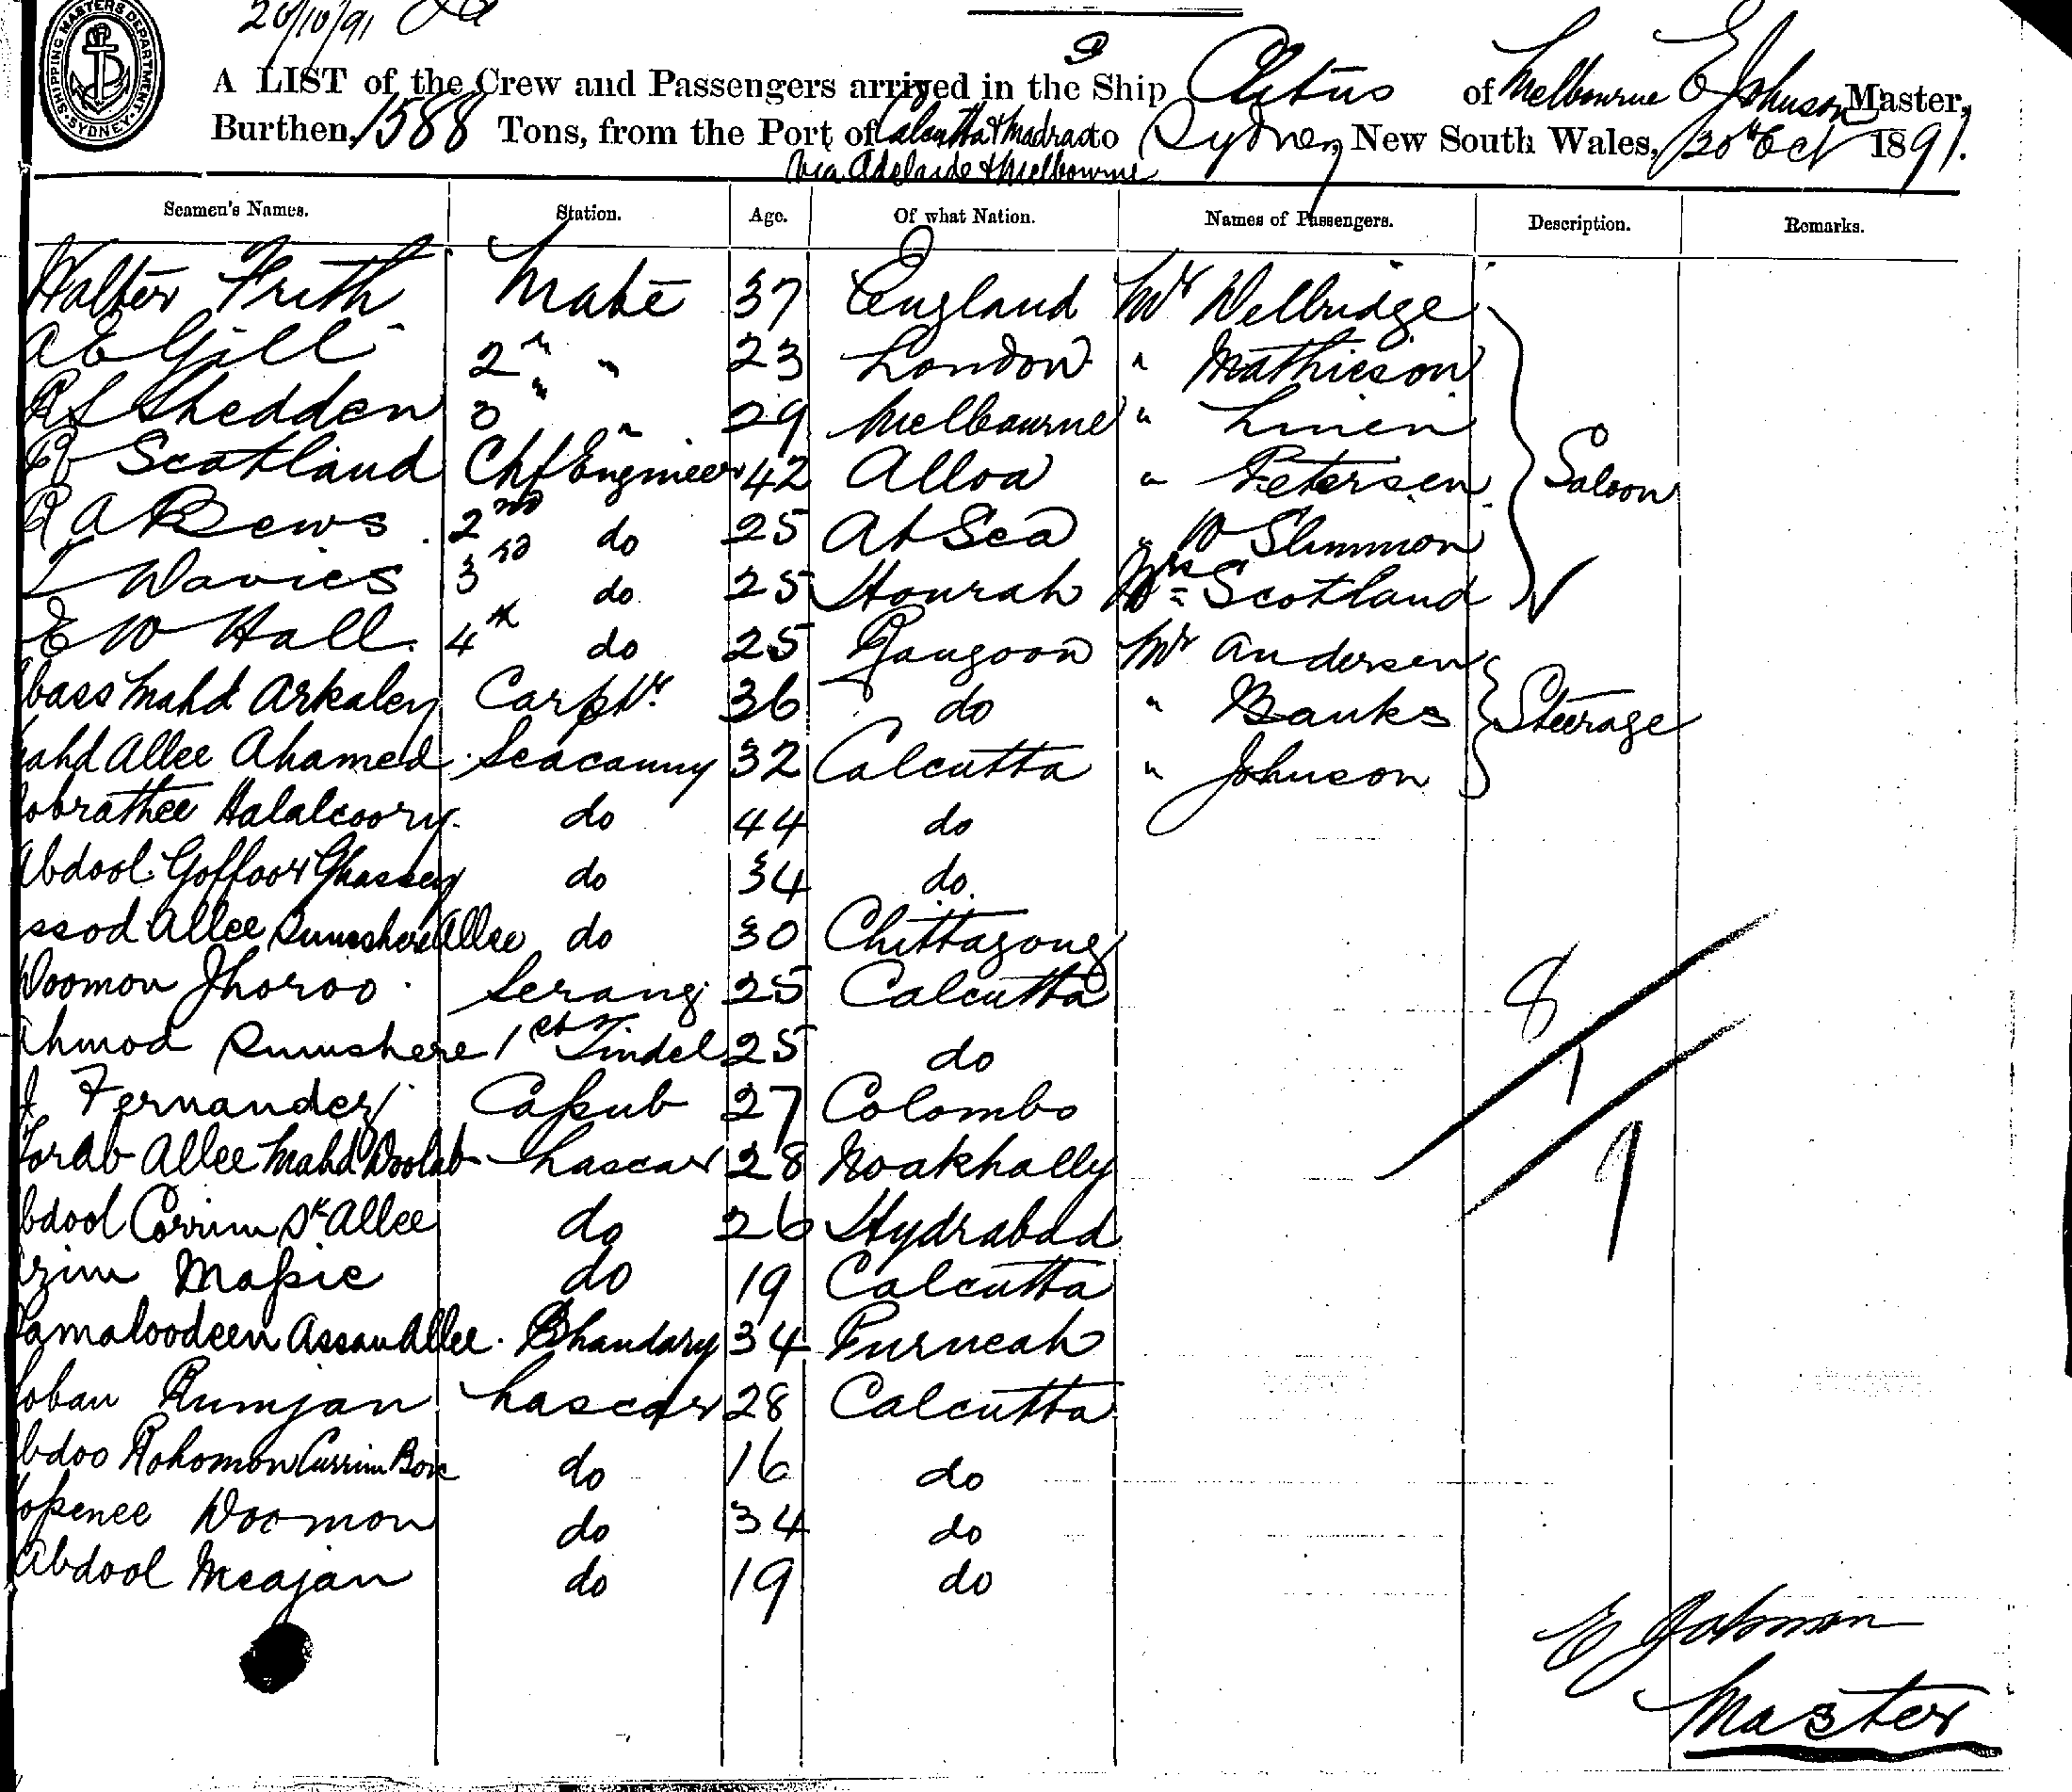 20/10/91
SHIPPING MASTERS DEPARTMENT SYDNEY
A LIST of the Crew and Passengers arrived in the Ship Clitus of Melbourne E Johnson Master,
Burthen, 1588 Tons, from the Port of Calcutta & Madras to Sydney, New South Wales, 20th Oct 1891.
Via Adelaide & Melbourne
Seamen's Names. Station. Age. Of what Nation. Names of Passengers. Description. Remarks.
Walter Frith Mate 37 England Mr Wellridge
A E Gill 2nd " 23 London " Mathieson
R L Shedden 3 " 29 Melbourne " Linen
Scotland Chf Engineer 42 Alloa " Petersen Saloon
R A Bews 2nd do 25 At Sea " W Slimmon
T Davies 3rd do 25 Hourah Mrs Scotland
E W Hall 4th do 25 Rangoon Mr Andersen
bass Mahd Arkaley Carptr. 36 do " Banks Steerage
ahd Allee Ahamed Seacunny 32 Calcutta " Johnson
obrathee Halalcoory do 44 do
Abdool Goffoor Ghassey do 34 do
ssod Allee Rumshere Allee do 30 Chittagong
Doomon Jhoroo Serang 25 Calcutta 8
Ahmod Rumshere 1st Tindel 25 do 1
J Fernandez Cassub 27 Colombo
Torab Allee Mahd Doolab Lascar 28 Noakhally 9
bdool Corrim Sk Allee do 26 Hydrabad
zim Massie do 19 Calcutta
amaloodeen Assan Allee Bhandary 34 Purneah
oban Rumjan Lascar 28 Calcutta
bdoo Rohomon Currim Box do 16 do
ossenee Doomon do 34 do
Abdool Meajan do 19 do
E Johnson
Master